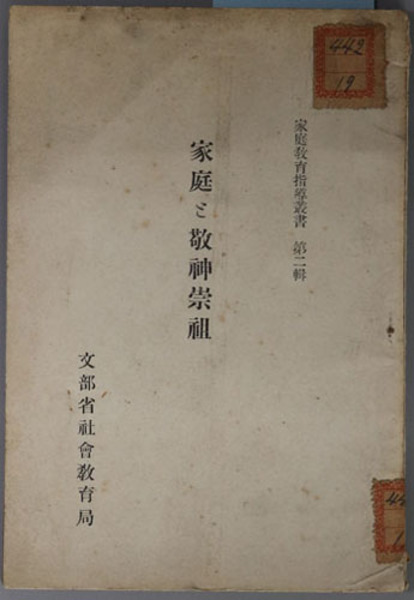 家庭教育指導叢書　第二輯
家庭と敬神崇祖
文部省社會教育局
442
19